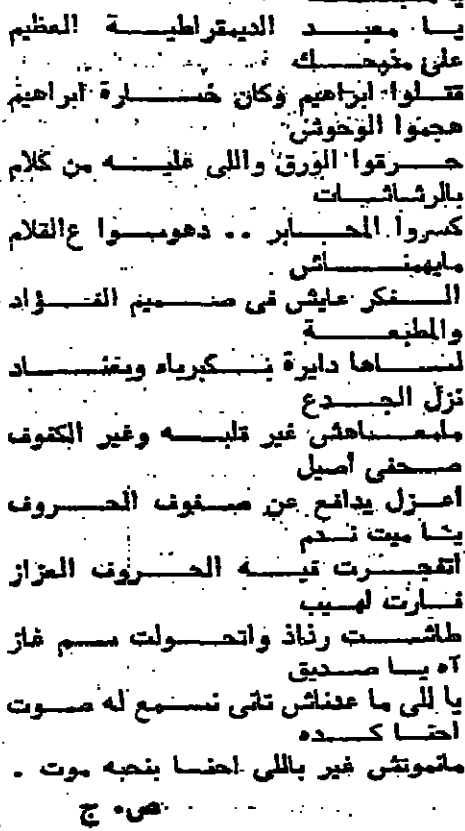 يا معبد الديمقراطية العظيم
على مذبحك
قتلوا ابراهيم وكان خسارة ابراهيم
هجموا الوحوش
حرقوا الورق واللى عليه من كلام
بالرشاشات
كسروا المحابر .. دهوسوا ع القلام
مايهمناش
الفكر عايش فى صميم الفؤاد
والمطبعة
لساها دايرة بكبرياء وبعناد
نزل الجدع
مامعاهش غير قلبه وغير الكفوف
صحفى أصيل
أعزل يدافع عن صفوف الحروف
يا ميت ندم
اتفجرت فيه الحروف العزاز
فارت لهيب
طاشت رذاذ واتحولت سم غاز
آه يا صديق
يا للى ما عدناش تانى نسمع له صوت
احنا كده
مانموتش غير باللى احنا بنحبه موت .
ص. ج